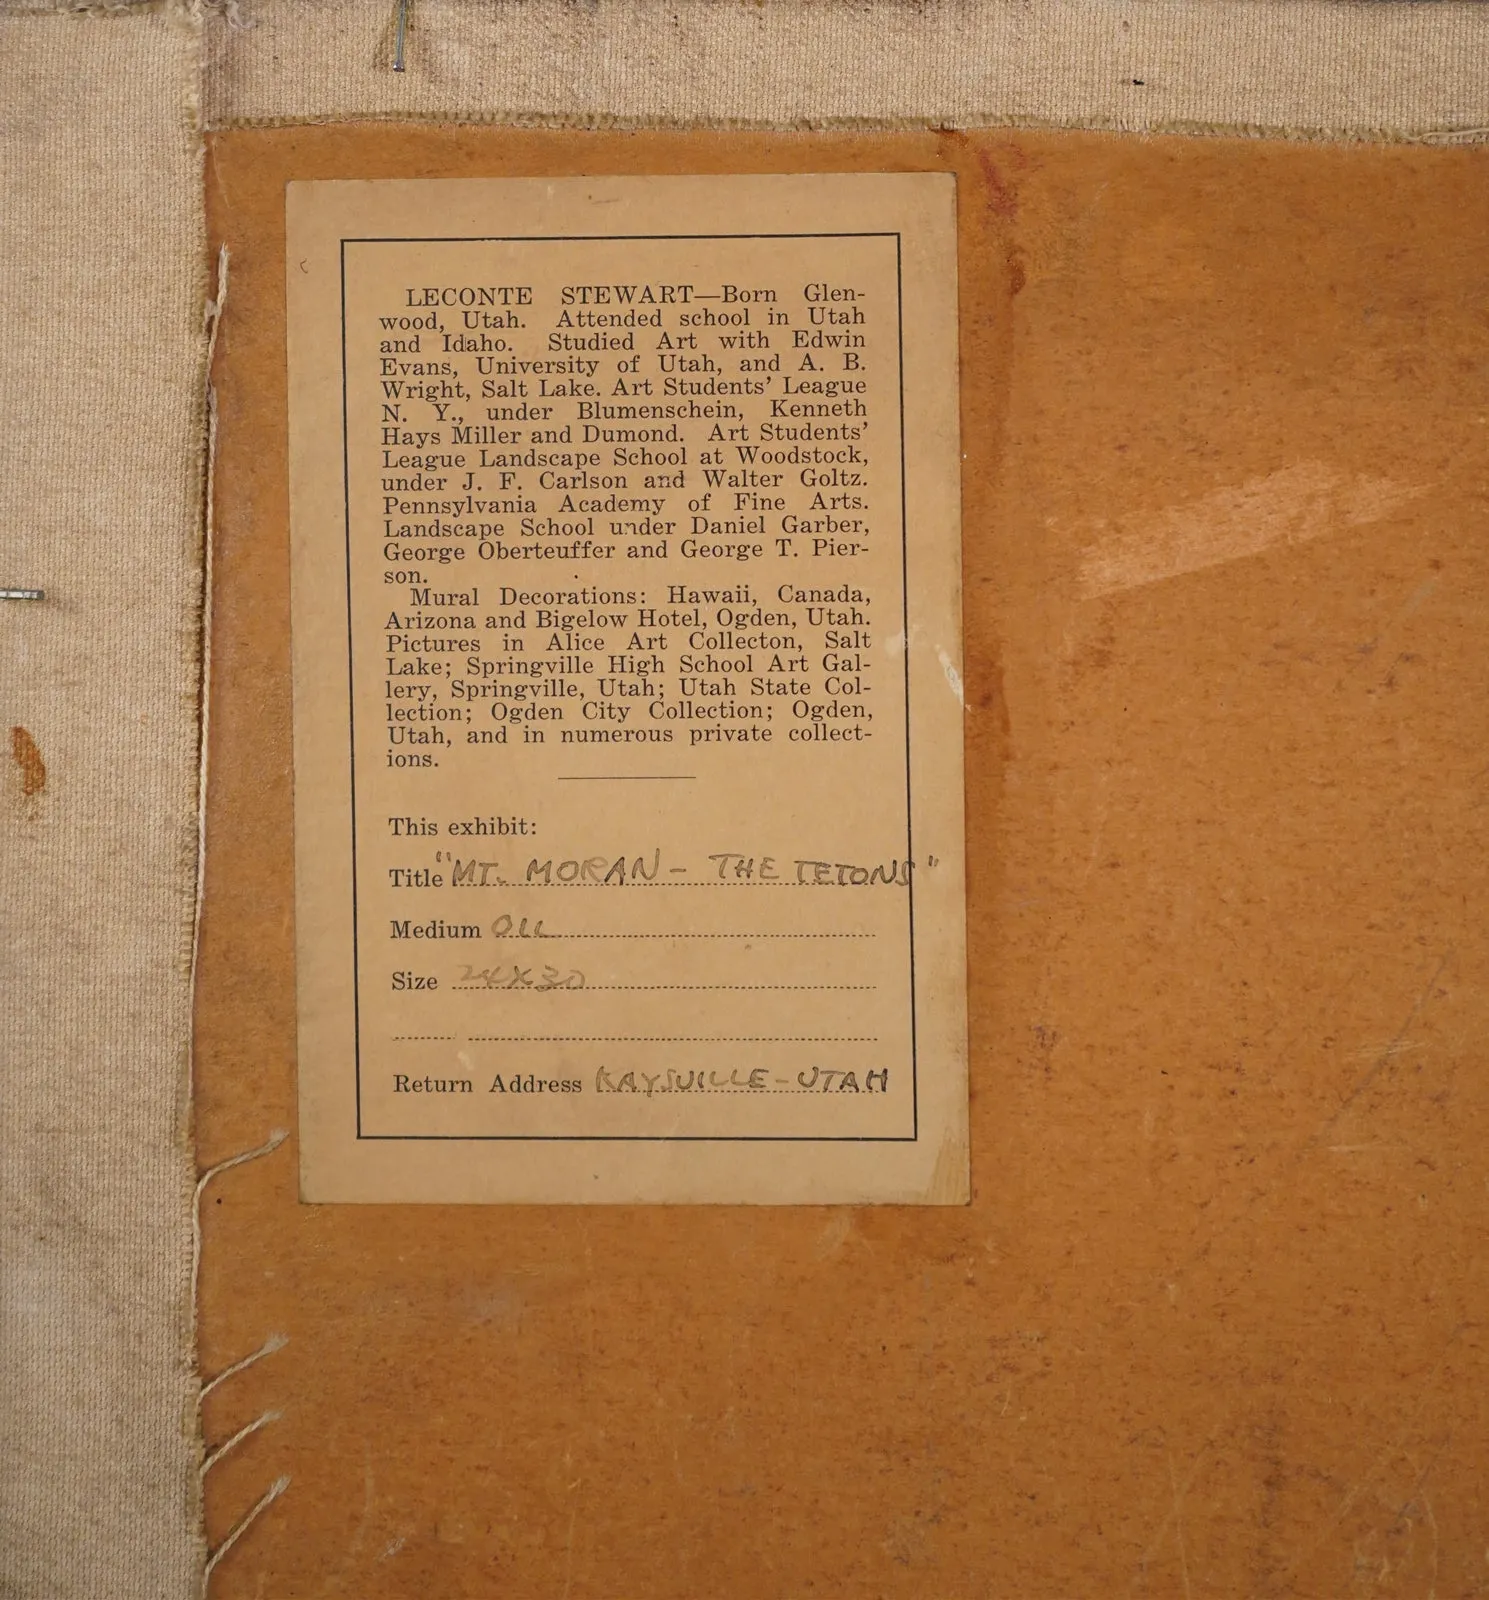 LECONTE STEWART—Born Glen-
wood, Utah. Attended school in Utah
and Idaho. Studied Art with Edwin
Evans, University of Utah, and A. B.
Wright, Salt Lake. Art Students' League
N. Y., under Blumenschein, Kenneth
Hays Miller and Dumond. Art Students'
League Landscape School at Woodstock,
under J. F. Carlson and Walter Goltz.
Pennsylvania Academy of Fine Arts.
Landscape School under Daniel Garber,
George Oberteuffer and George T. Pier-
son.
Mural Decorations: Hawaii, Canada,
Arizona and Bigelow Hotel, Ogden, Utah.
Pictures in Alice Art Collecton, Salt
Lake; Springville High School Art Gal-
lery, Springville, Utah; Utah State Col-
lection; Ogden City Collection; Ogden,
Utah, and in numerous private collect-
ions.
This exhibit:
Title "MT. MORAN - THE TETONS"
Medium OIL
Size 24X30
Return Address KAYSVILLE - UTAH